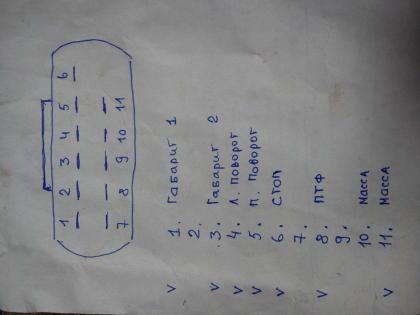 1 2 3 4 5 6
7 8 9 10 11
V 1. Габарит 1
2.
V 3. Габарит 2
V 4. Л. поворот
V 5. П. Поворот
V 6. СТОП
7.
V 8. ПТФ
9.
V 10. Масса
V 11. Масса